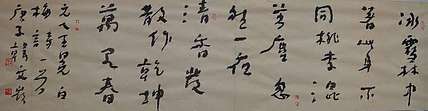 冰雪林中
著此身不
同桃李混
芳塵忽
然一夜
清香發
散作乾坤
萬里春
元人王冕白
梅詩一首
庚子